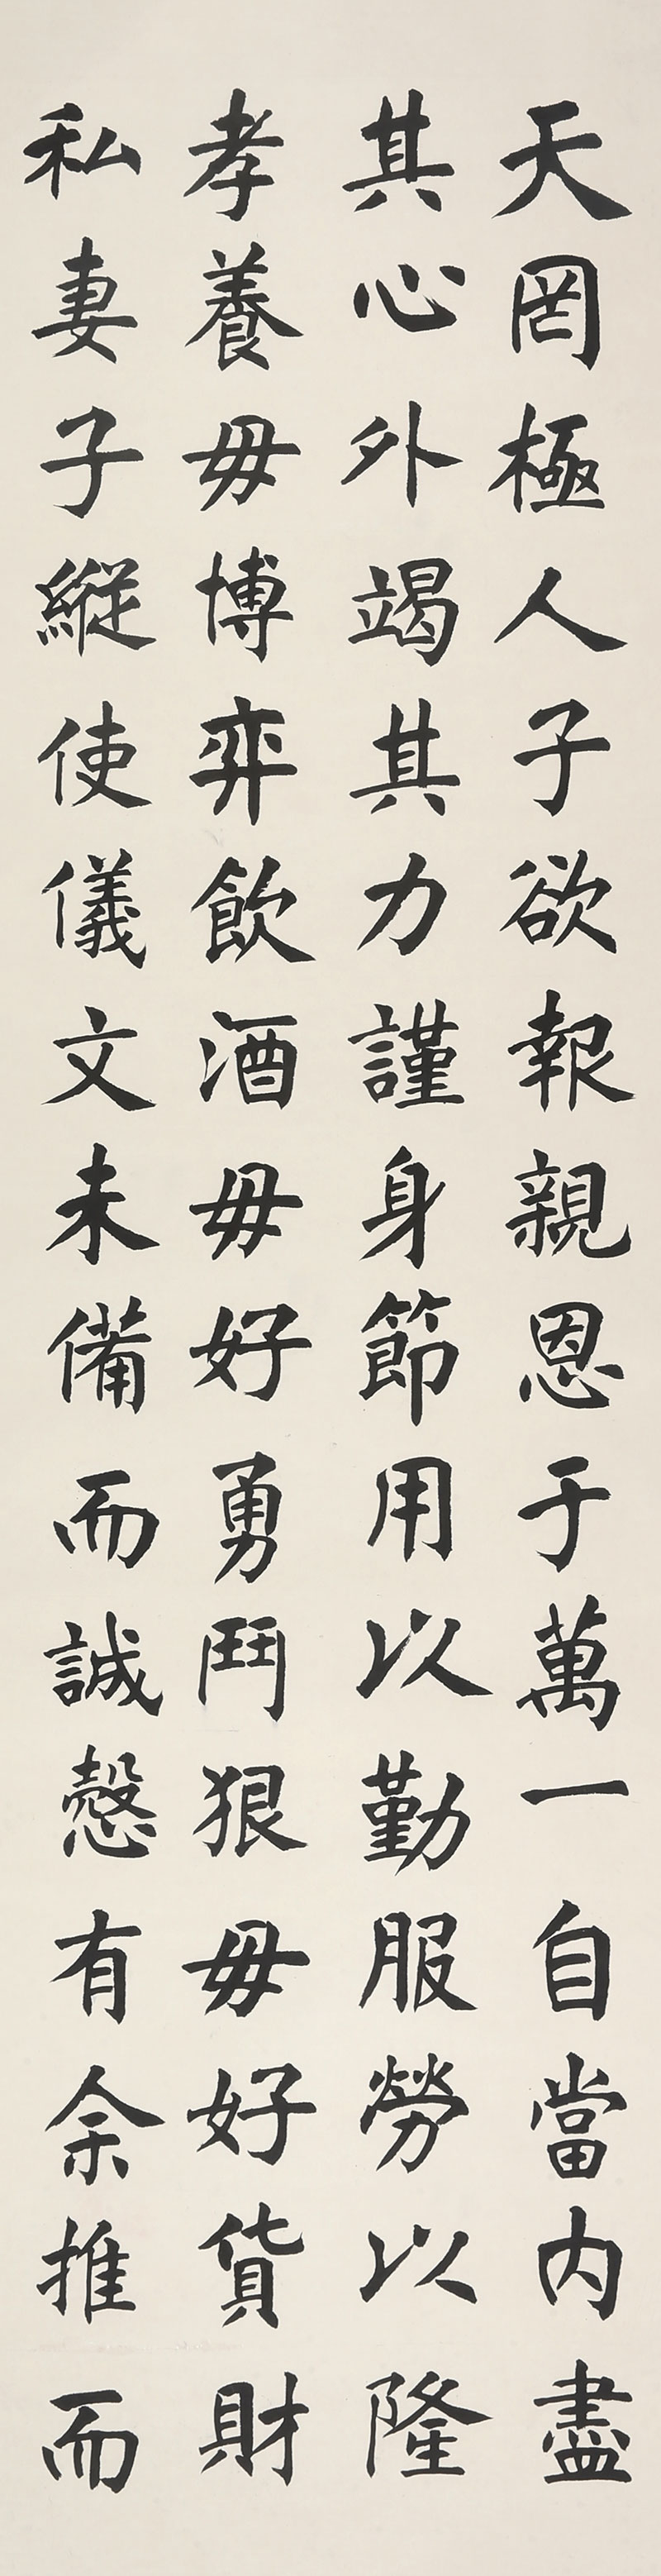 天罔極人子欲報親恩于萬一自當内盡
其心外竭其力謹身節用以勤服勞以隆
孝養毋博弈飲酒毋好勇鬥狠毋好貨財
私妻子縱使儀文未備而誠慤有余推而